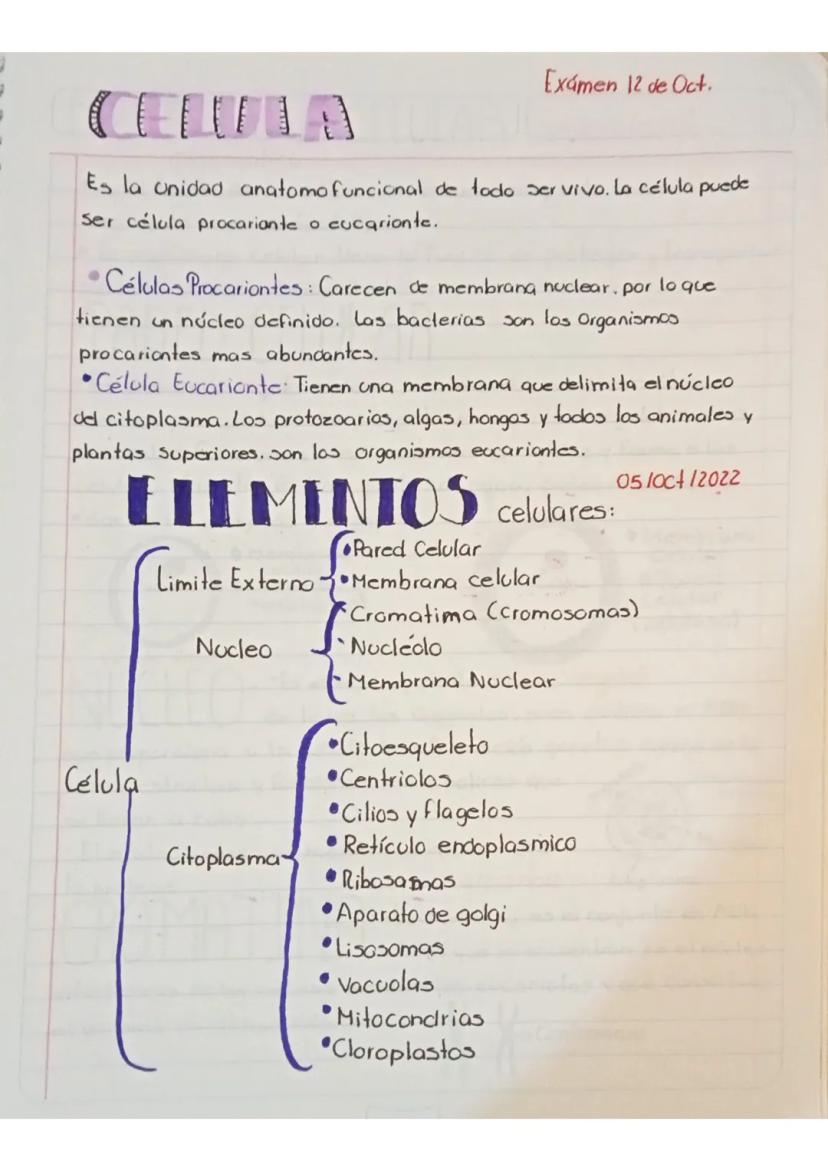 Exámen 12 de Oct.
CELULA
Es la unidad anatomofuncional de todo ser vivo. La célula puede
ser célula procarionte o eucarionte.
• Células Procariontes: Carecen de membrana nuclear, por lo que
tienen un núcleo definido. Las bacterias son los Organismos
procariontes mas abundantes.
• Célula Eucarionte: Tienen una membrana que delimita el núcleo
del citoplasma. Los protozoarios, algas, hongos y todos los animales y
plantas superiores. son los organismos eucariontes.
05/Oct/2022
ELEMENTOS celulares:
• Pared Celular
Limite Externo • Membrana celular
Cromatima (cromosomas)
Nucleo Nucléolo
Membrana Nuclear
• Citoesqueleto
Célula • Centriolos
• Cilios y flagelos
• Retículo endoplasmico
Citoplasma
• Ribosomas
• Aparato de golgi
• Lisosomas
• Vacuolas
• Mitocondrias
• Cloroplastos